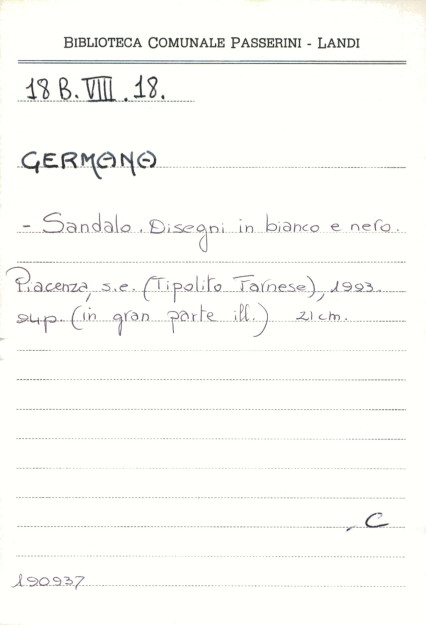 BIBLIOTECA COMUNALE PASSERINI - LANDI
18 B. VIII . 18.
GERMANA
- Sandalo. Disegni in bianco e nero.
Piacenza, s.e. (Tipolito Farnese), 1993.
(in gran parte ill.) 21 cm.
C
190937